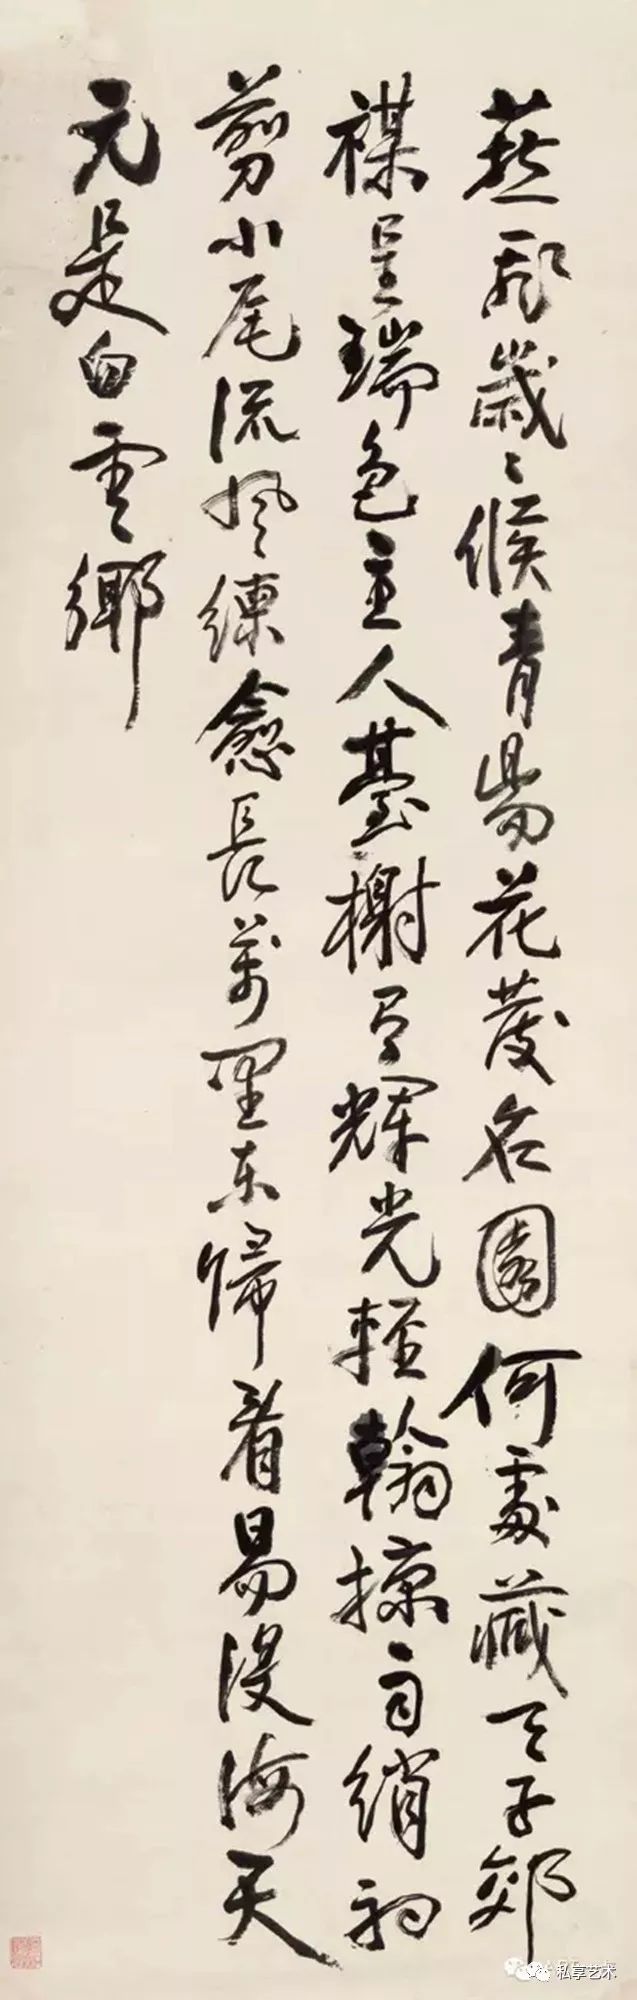 燕飛歲〻候青陽花發名園何處藏天子郊
禖呈瑞色主人臺榭有輝光輕翰掠雨綃初
剪小尾流風練愈長萬里東歸看易沒海天
元是白雲鄉
私享艺术